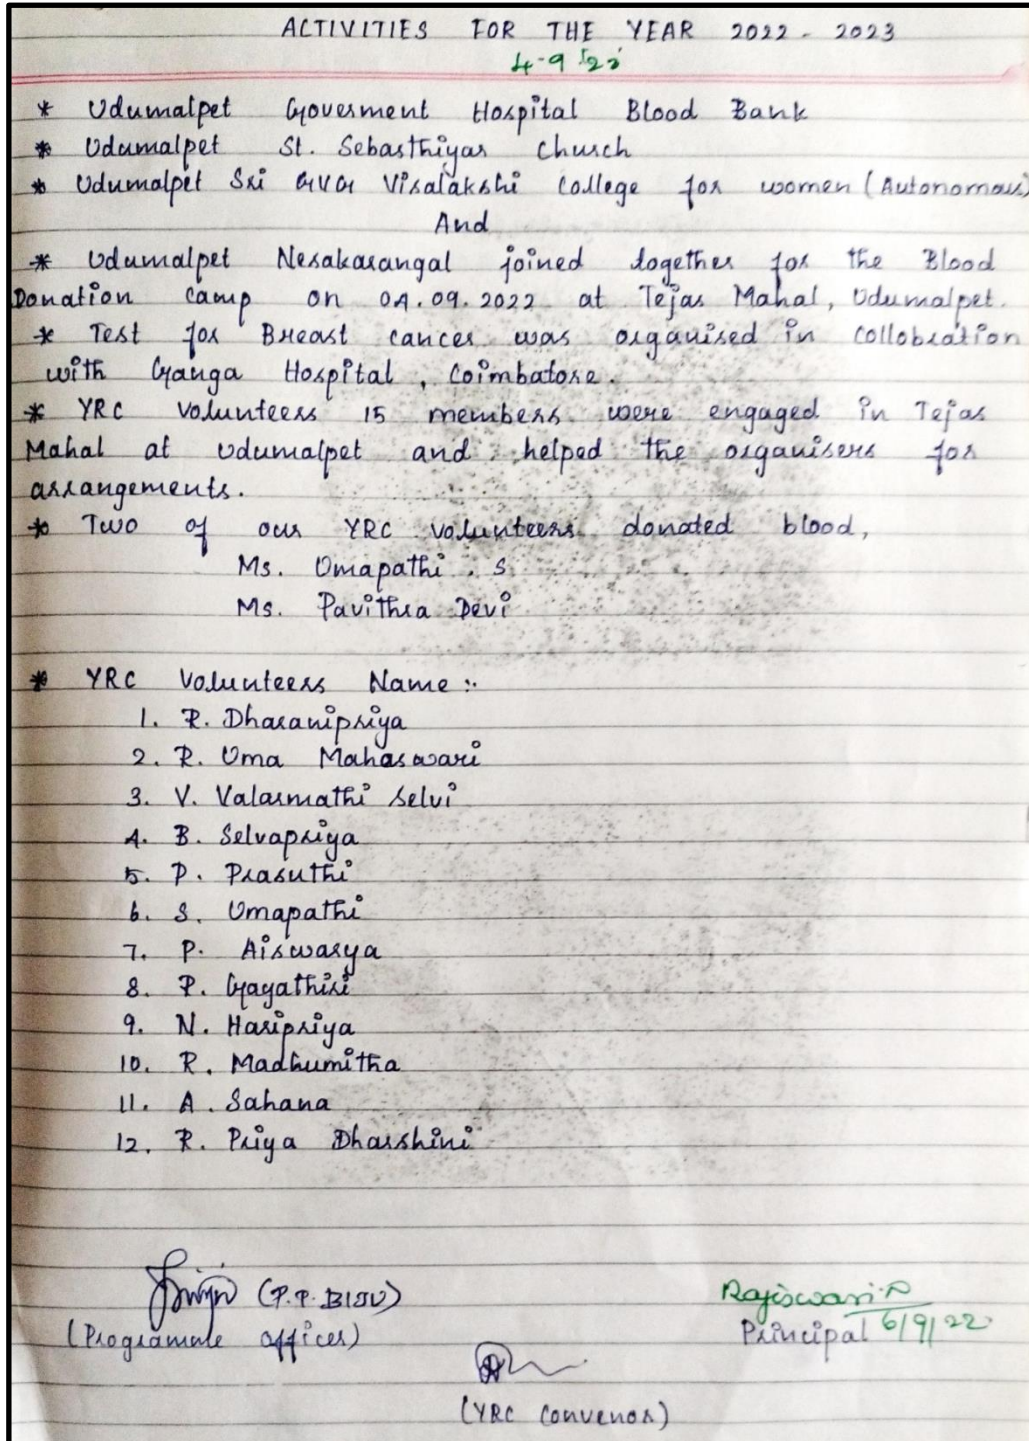 ACTIVITIES FOR THE YEAR 2022 - 2023
4-9-22
* Udumalpet Goverment Hospital Blood Bank
* Udumalpet St. Sebasthiyar Church
* Udumalpet Sri GVG Visalakshi College for women (Autonomous)
And
* Udumalpet Nesakarangal joined together for the Blood
Donation camp on 04.09.2022 at Tejas Mahal, Udumalpet.
* Test for Breast cancer was organised in collobration
with Ganga Hospital, Coimbatore.
* YRC Volunteers 15 members were engaged in Tejas
Mahal at Udumalpet and helped the organisers for
arrangements.
* Two of our YRC volunteers donated blood,
Ms. Umapathi . S
Ms. Pavithra Devi
* YRC Volunteers Name :-
1. R. Dharanipriya
2. R. Uma Mahaswari
3. V. Valarmathi Selvi
4. B. Selvapriya
5. P. Prasuthi
6. S. Umapathi
7. P. Aiswarya
8. P. Gayathiri
9. N. Haripriya
10. R. Madhumitha
11. A. Sahana
12. R. Priya Dharshini
(P.P. BIJU)
(Programme officer)
Rajiswari.P
Principal 6/9/22
(YRC Convenor)